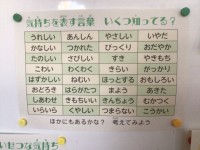 気持ちを表す言葉 いくつ知ってる?
うれしい あんしん やさしい いやだ
かなしい つかれた びっくり おだやか
たのしい さびしい すき やすらぐ
こわい わくわく きらい がっかり
はずかしい ねむい ほっとする おもしろい
おどろき はらがたつ まよう あきた
しあわせ きもちいい きんちょう むかつく
いらいら くやしい つまらない こうかい
ほかにもあるかな? 考えてみよう